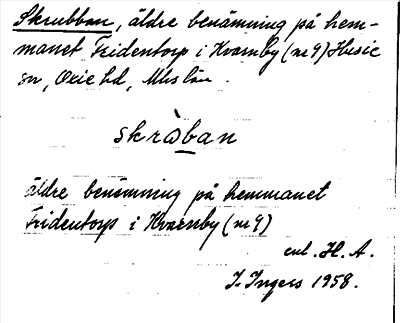 Skrubban, äldre benämning på hem-
manet Fridentorp i Kvarnby (nr 9) Husie
sn, Oxie hd, Mlhs län.
skràban
äldre benämning på hemmanet
Fridentorp i Kvarnby (nr 9)
enl. H. A.
I. Ingers 1958.